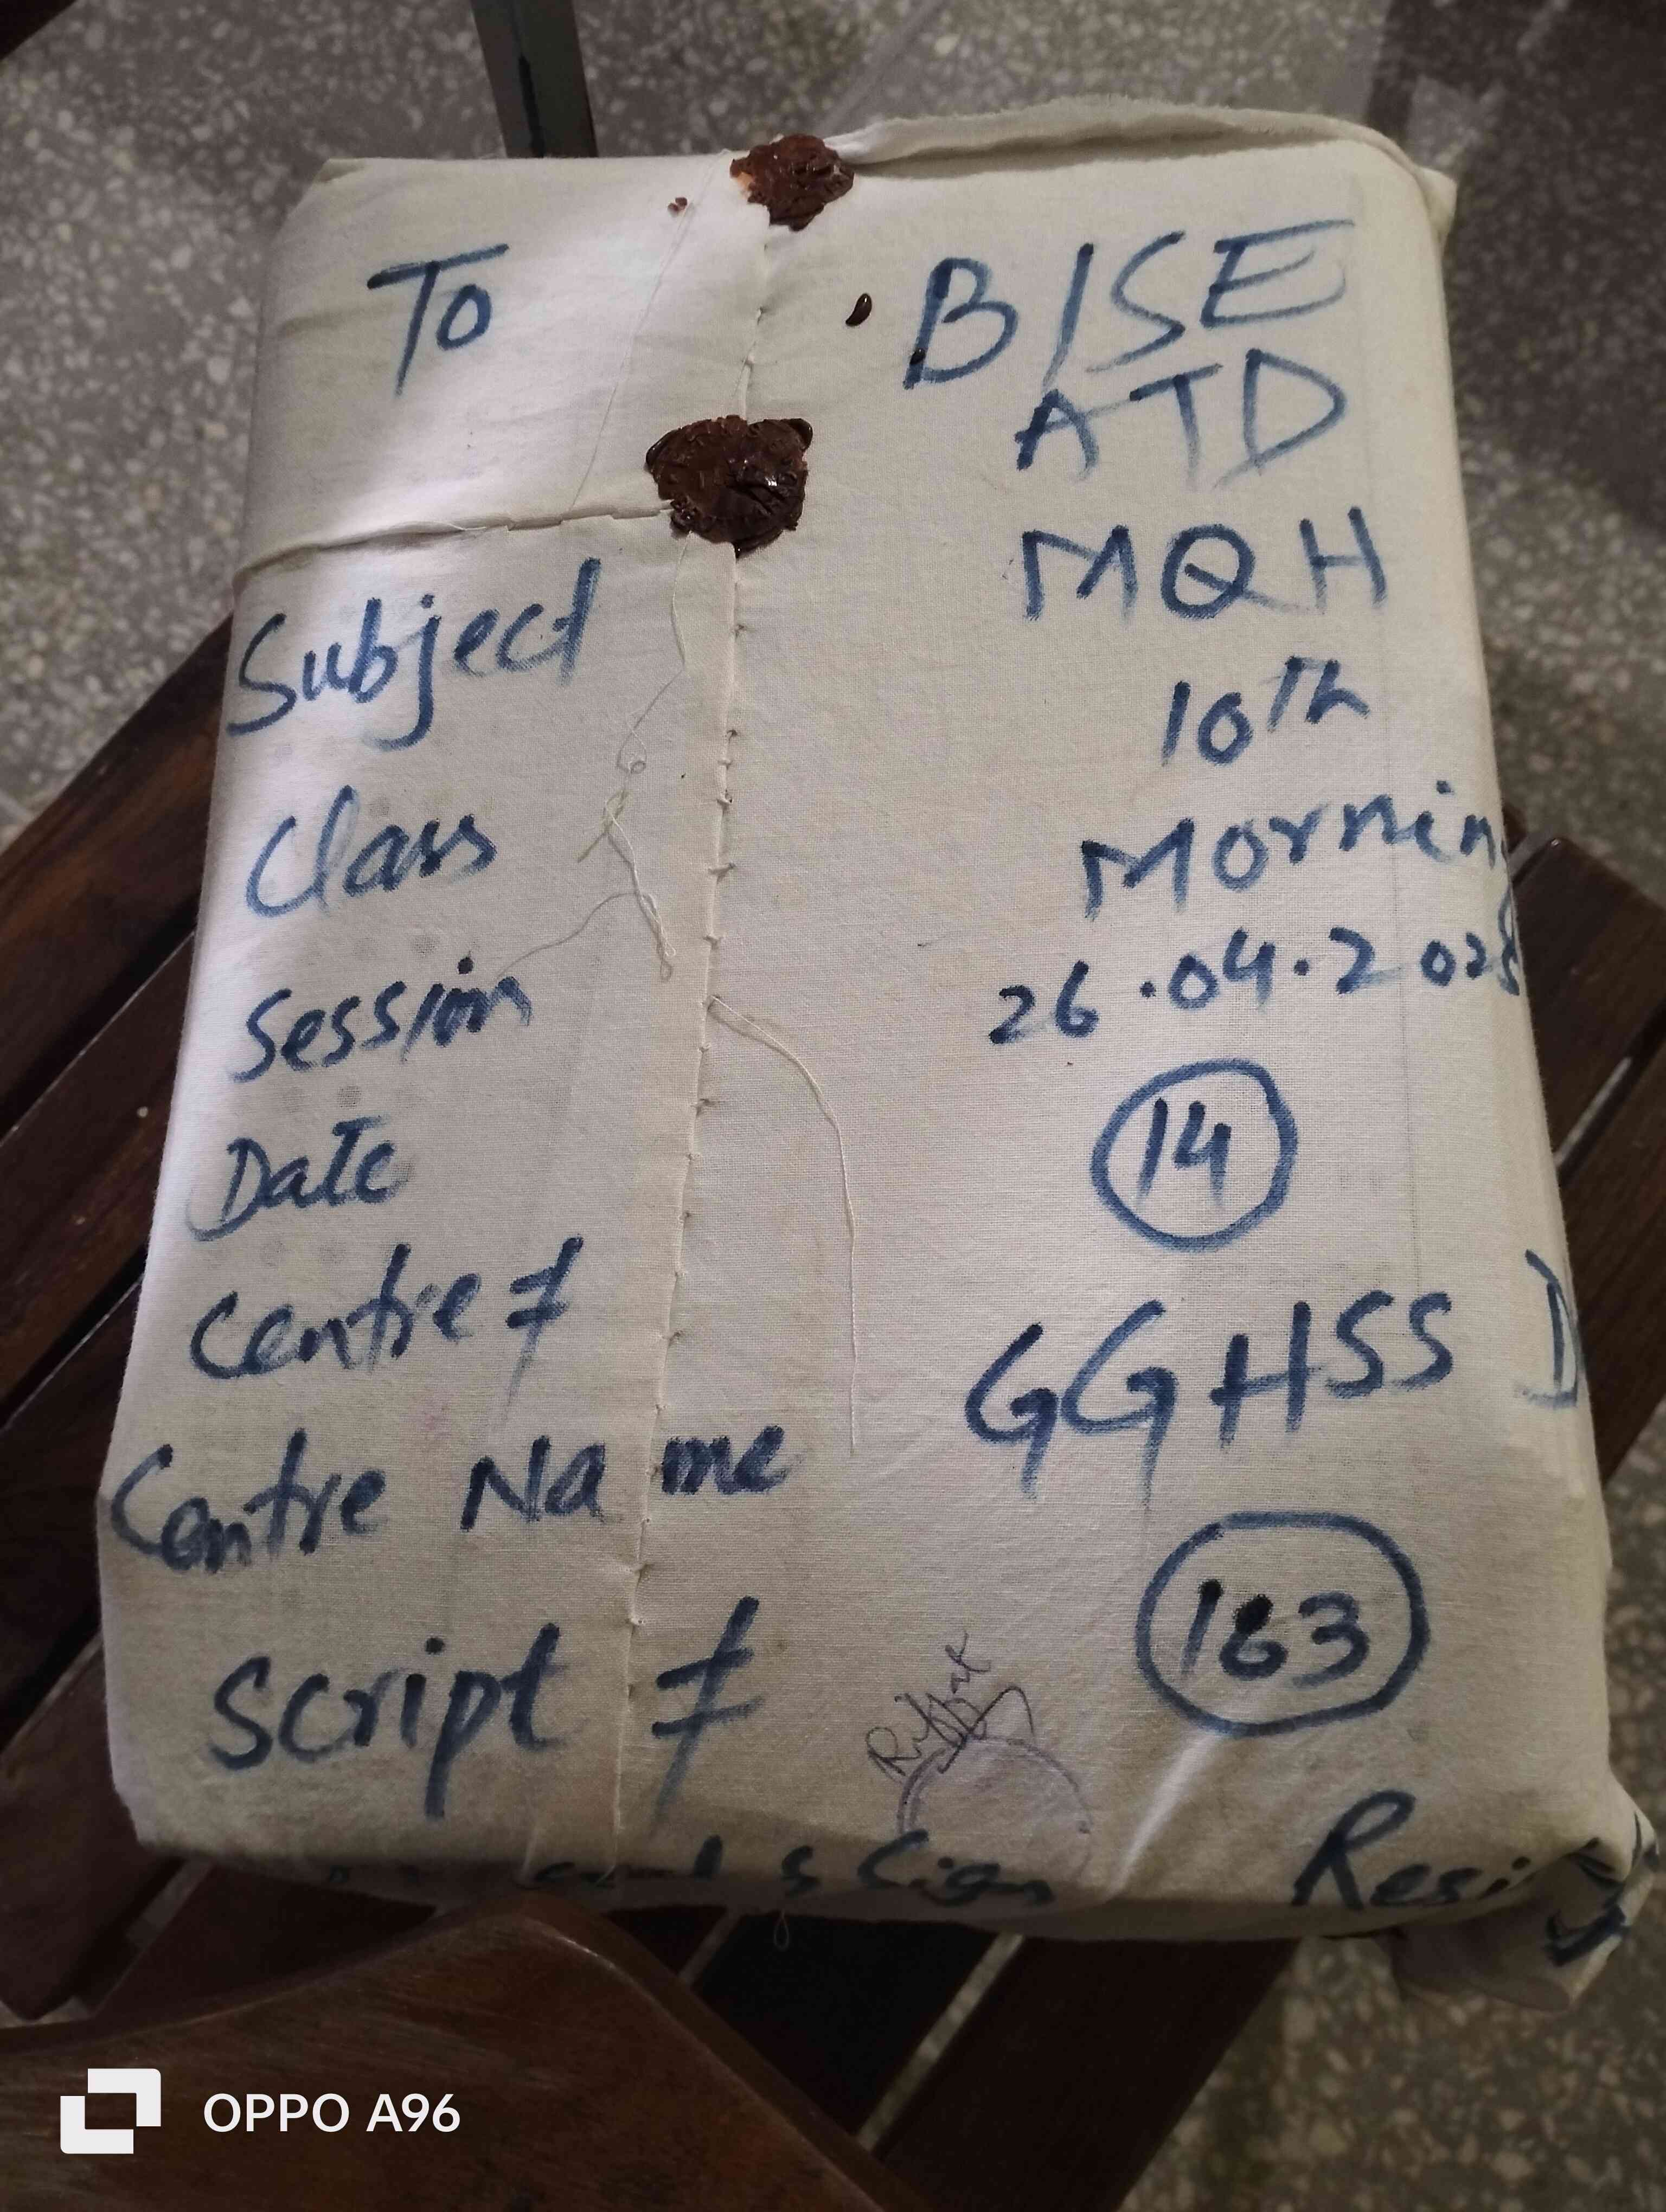 To BISE
ATD
Subject MQH
Class 10th
Session Morning
Date 26.04.2025
Centre # 14
Centre Name GGHSS D
Script # 163
Riffat
& Sign Resi
OPPO A96